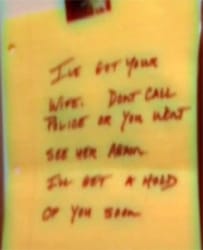 I'VE GOT YOUR
WIFE. DONT CALL
POLICE OR YOU WONT
SEE HER AGAIN
I'LL GET A HOLD
OF YOU SOON